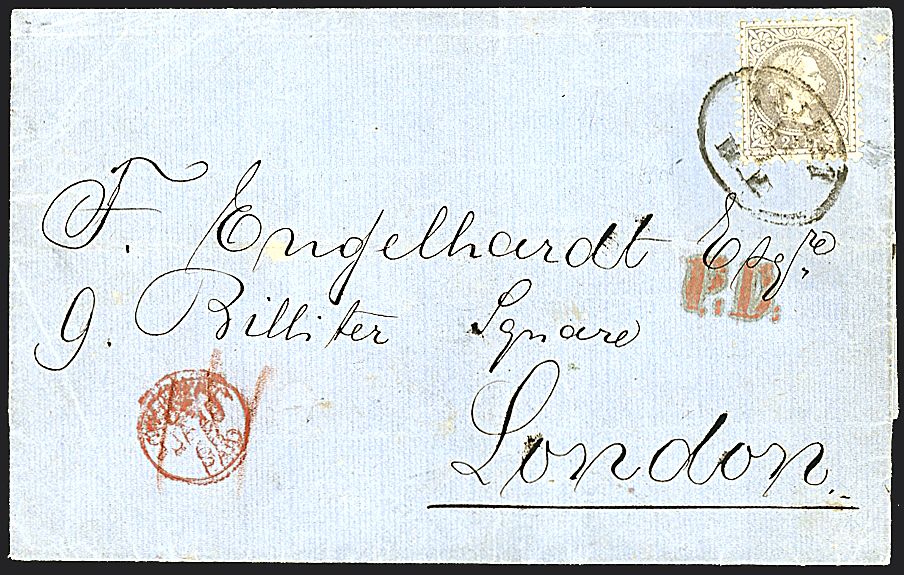 25
F. Engelhardt Esqre
P.D.
9. Billiter Square
London
PAID